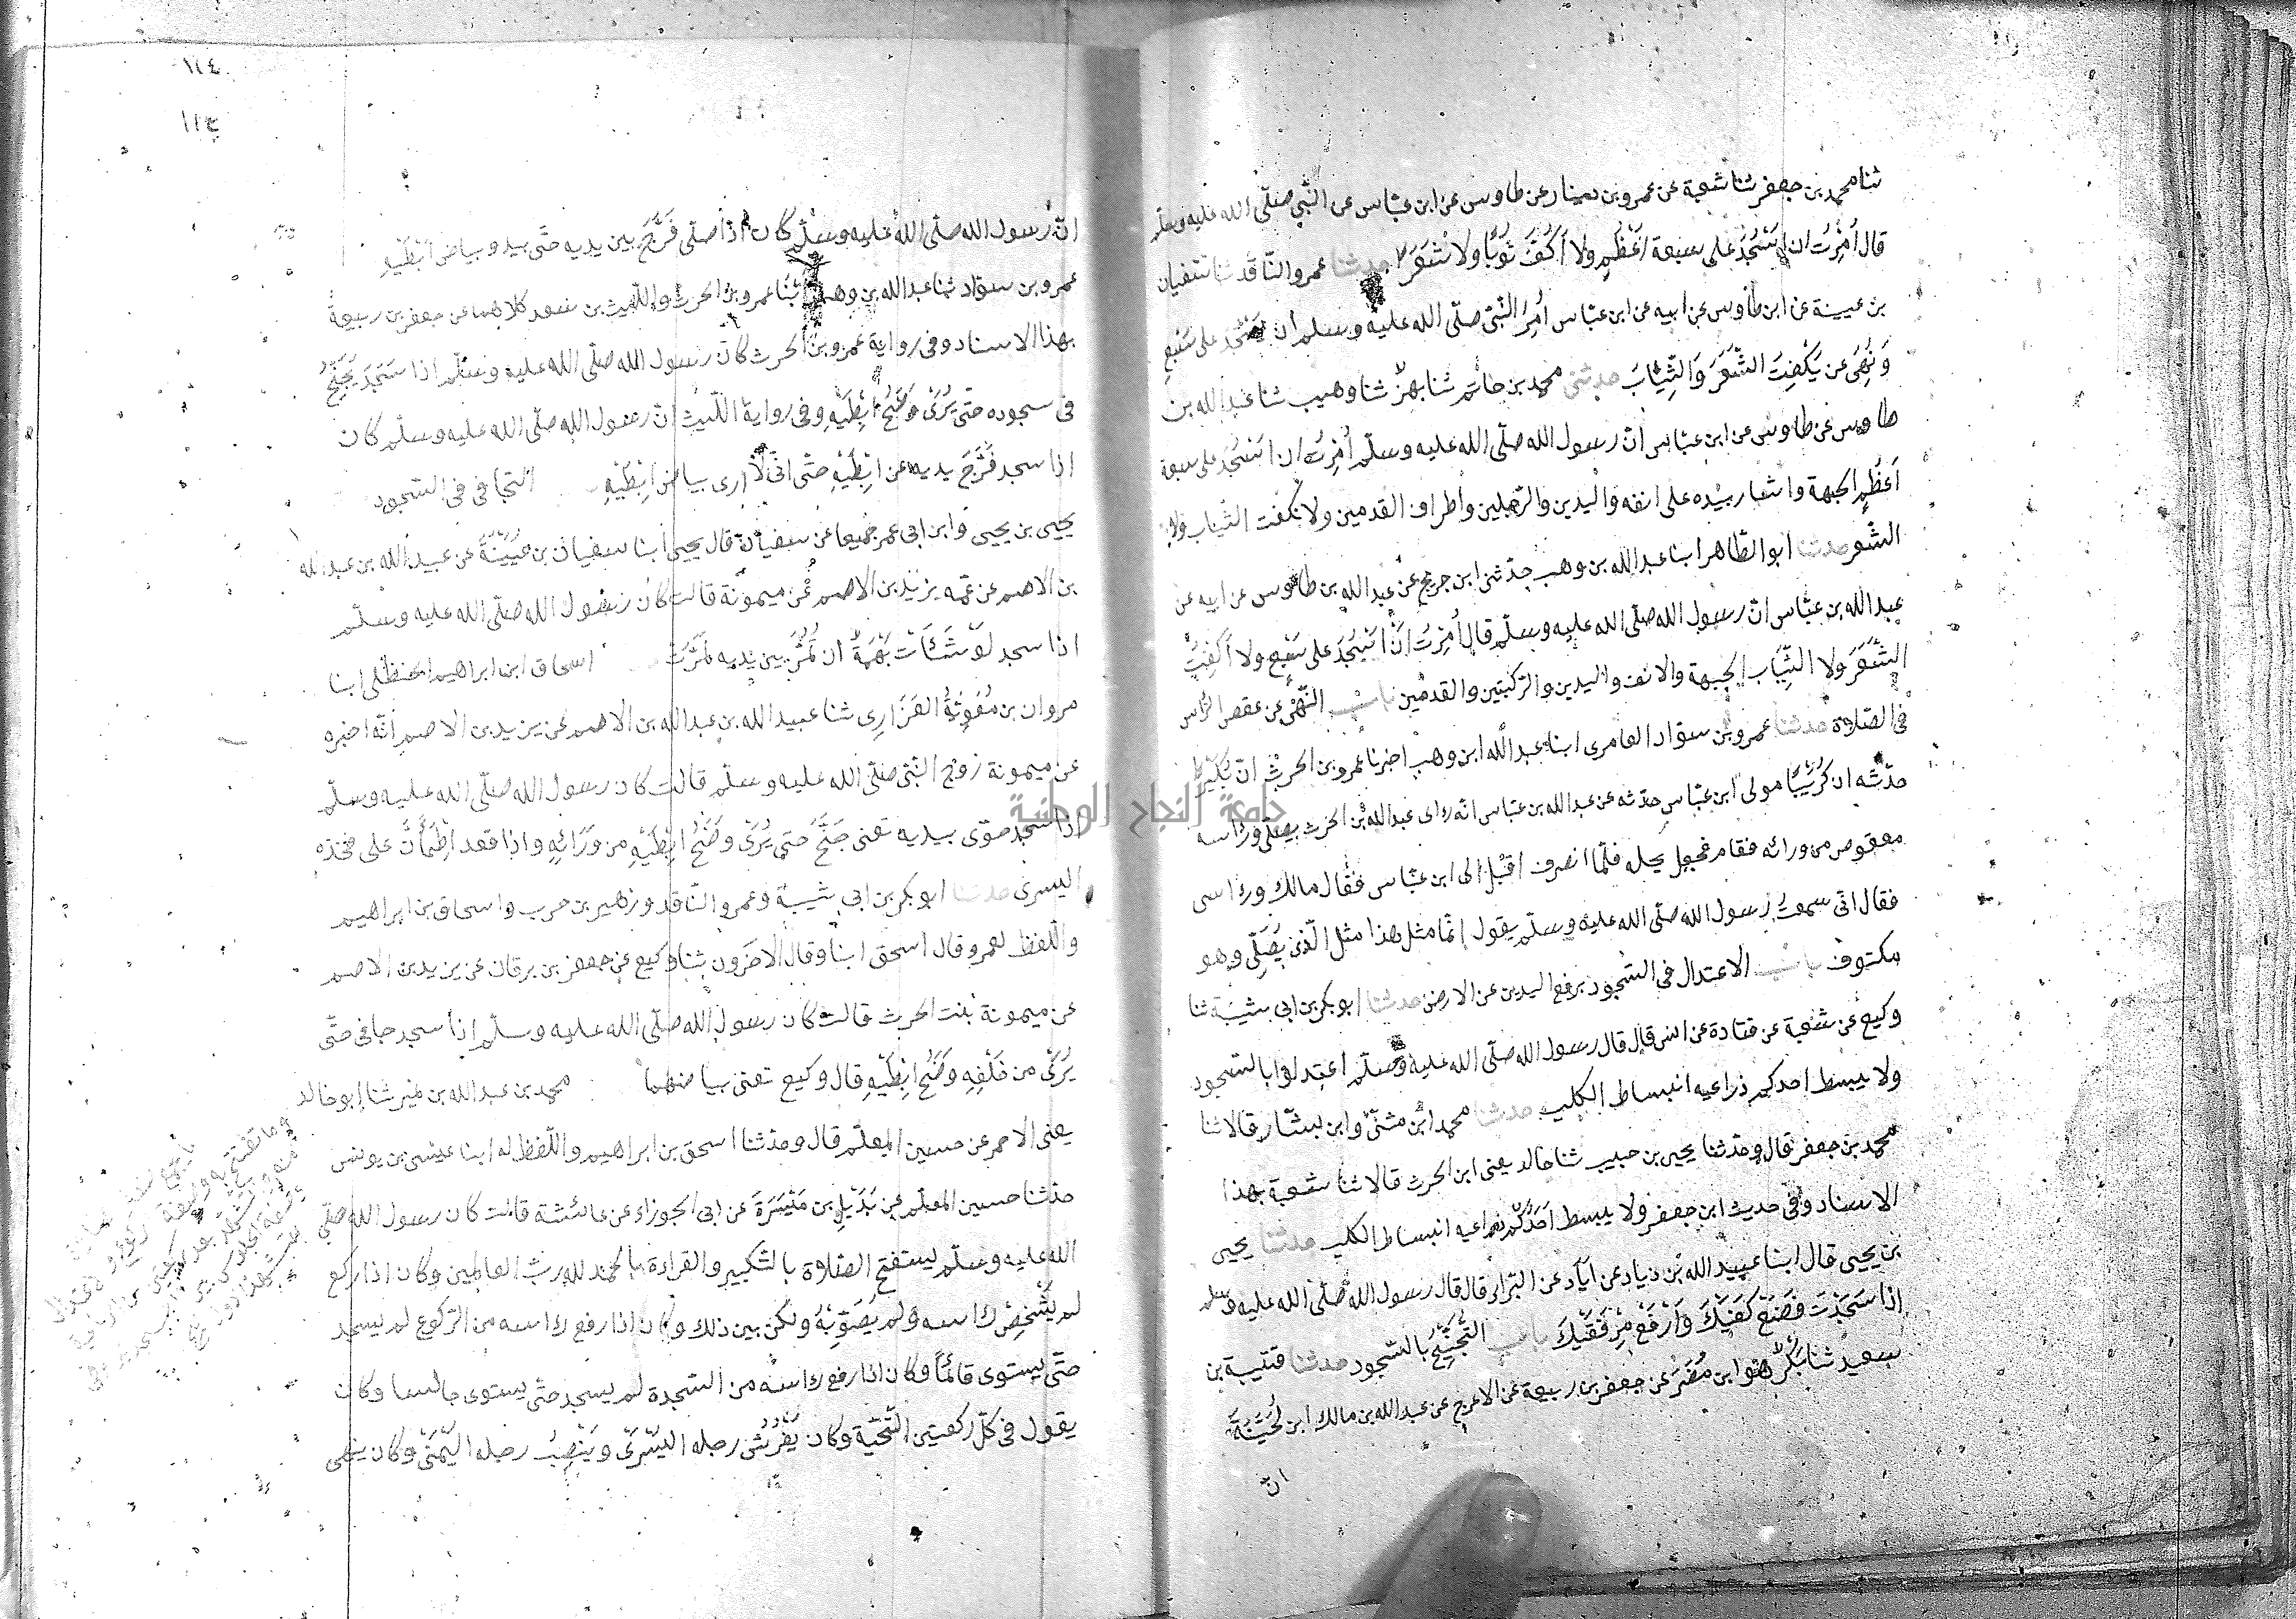 ثنا محمد بن جعفر ثنا شعبة عن عمرو بن دينار عن طاوس عن ابن عباس عن النبي صلّى الله عليه وسلم
قال أُمِرْتُ ان اَسْجُدَ على سبعة اَعْظُمٍ ولا اَكُفَّ ثَوْبًا ولا شَعَرًا حدثنا عمرو الناقد ثنا سفيان
بن عيينة عن ابن طاوس عن ابيه عن ابن عبّاس اُمِرَ النّبى صلّى الله عليه وسلم أن يَسْجُدَ على سَبْعٍ
وَنُهِىَ عن يَكْفِتَ الشَّعَرَ وَالثِّيَابَ حدثنى محمد بن حاتم ثنا بهز ثنا وهيب ثنا عبد الله بن
طاوس عن طاوس عن ابن عباس انّ رسول الله صلّى الله عليه وسلّم أُمِرْتُ ان اَسْجُدَ على سبعة
اَعْظُمٍ الجبهة واشار بيده على انفه واليدين والرّجلين واطراف القدمين ولا نكفت الثّياب ولا
الشّعر حدثنا ابو الطّاهر ابنا عبد الله بن وهب حدّثنى ابن جريج عن عبد الله بن طاوس عن ابيه عن
عبد الله بن عبّاس انّ رسول الله صلّى الله عليه وسلّم قال أُمِرْتُ اَنْ اَسْجُدَ على سَبْعٍ ولا اَكْفِتَ
الشَّعَرَ ولا الثِّيَاب الجبهة والانف واليدين والرّكبتين والقدمين باب النّهى عن عقص الرّأس
فى الصّلاة حدثنا عمرو بن سوّاد العامرى ابنا عبد الله ابن وهب اخبرنا عمرو بن الحرث انّ بُكَيْرًا
حدّثه ان كُرَيْبًا مولى ابن عبّاس حدّثه عن عبد الله بن عبّاس انه راى عبد الله بن الحرث يصلّى وراسه
معقوص من ورائه فقام فجعل يحله فلمّا انصرف اَقْبَلَ الى ابن عبّاس فقال مالك وراسى
فقال انّى سمعت رسول الله صلّى الله عليه وسلّم يقول إنّما مثل هذا مثل الّذى يُصَلِّى وهو
مكتوف باب الاعتدال فى السّجود برفع اليدين عن الارض حدثنا ابو بكر بن ابى شَيْبَة ثنا
وكيع عن شعبة عن قتادة عن انس قال قال رسول الله صلّى الله عليه وسلّم اعتدلوا بالسّجود
ولا يبسط احدكم ذراعيه انبساط الكلب حدثنا محمد ابن مثنّى وابن بشّار قالا ثنا
محمد بن جعفر قال وحدّثنا يحيى بن حبيب ثنا خالد يعنى ابن الحرث قالا ثنا شعبة بهذا
الاسناد وفى حديث ابن جعفر ولا يبسط اَحَدُكُم ذراعيه انبساط الكلب حدثنا يحيى
بن يحيى قال ابنا عبيد الله بن زياد عن اياد عن البراء قال قال رسول الله صلّى الله عليه وسلم
اِذا سَجَدْتَ فَضَعْ كَفَيْكَ وَارْفَعْ مِرْفَقَيْكَ باب التَّجْنِيْحُ بالسّجود حدثنا قتيبة بن
سعيد ثنا بَكْرٌ هُوَ ابن مُضَرَ عن جعفر بن ربيعة عن الاعرج عن عبد الله بن مالك ابن بُحَيْنَةَ
انّ
١١٤
انّ رسول الله صلّى الله عليه وسلّم كان اذا صلّى فَرَّجَ بين يديه حتّى يبدو بياض ابْطَيْهِ
عمرو بن سوّاد ثنا عبد الله بن وهب ابنا عمرو بن الحرث واللّيث بن سعد كلاهما عن جعفر بن ربيعة
بهذا الاسناد وفى رواية عمرو بن الحرث كان رسول الله صلّى الله عليه وسلّم اذا سَجَدَ يُجَنِّحُ
فى سجوده حتى يُرَى وَضَحُ اِبْطَيْهِ وفى رواية اللّيث انّ رسول الله صلّى الله عليه وسلّم كان
اذا سجد فَرَّجَ يديه عن اِبْطَيْهِ حتّى انّى لَاَرى بياض اِبْطَيْهِ التجافى فى السّجود
يحيى بن يحيى وابن ابى عمر جميعا عن سفيان قال يحيى ابنا سفيان بن عُيَيْنَةَ عن عبيد الله بن عبد الله
بن الاصم عن عمّه يزيد بن الاصم عن ميمونة قالت كان رسول الله صلّى الله عليه وسلّم
اذا سجد لَوْ شَائَتْ بَهْمَةٌ ان تَمُرَّ بين يديه لَمَرَّتْ اسحاق ابن ابراهيم الحنظلى ابنا
مروان بن مُعَوِيَةَ الفَزَارِى ثنا عبيد الله بن عبد الله بن الاصم عن يزيد بن الاصم انّه اخبره
عن ميمونة زوج النّبى صلّى الله عليه وسلّم قالت كان رسول الله صلّى الله عليه وسلّم
اذا سجد خوّى بيديه تعنى جَنَّحَ حتى يُرَى وَضَحُ اِبْطَيْهِ من وَرَائِهِ واذا قعد اِطْمَأَنَّ على فخذه
اليسرى حدثنا ابو بكر بن ابى شيبة وعمرو النّاقد وزهير بن حرب واسحاق بن ابراهيم
واللّفظ لعمرو قال اسحق ابنا وقال الاخرون ثنا وكيع عن جعفر بن برقان عن يزيد بن الاصم
عن ميمونة بنت الحرث قالت كان رسول الله صلّى الله عليه وسلّم اذا سجد جافى حتّى
يُرَى من خَلْفِهِ وَضَحُ اِبْطَيْهِ قال وكيع تعنى بياضهما محمد بن عبد الله بن نمير ثنا ابو خالد
يعنى الاحمر عن حسين المعلّم قال وحدّثنا اسحق بن ابراهيم واللّفظ له ابنا عيسى بن يونس
حدّثنا حسين المعلّم عن بُدَيْلِ بن مَيْسَرَةَ عن ابى الجوزاء عن عائشة قالت كان رسول الله صلّى
الله عليه وسلّم يستفتح الصّلاة بالتّكبير والقراءة بالحمد لله ربّ العالمين وكان اذا ركع
لم يُشْخِصْ راسه وَلم يُصَوِّبْهُ ولكن بين ذلك وكان اذا رفع راسه من الرّكوع لم يسجد
حتّى يستوى قائمًا وكان اذا رفع راسه من السّجدة لم يسجد حتّى يستوى جالسا وكان
يقول فى كلّ ركعتين التَّحِيَّة وكان يَفْرُشُ رجله اليُسْرَى ويَنْصِبُ رجله اليُمْنَى وكان ينهى
جامعة النجاح الوطنية